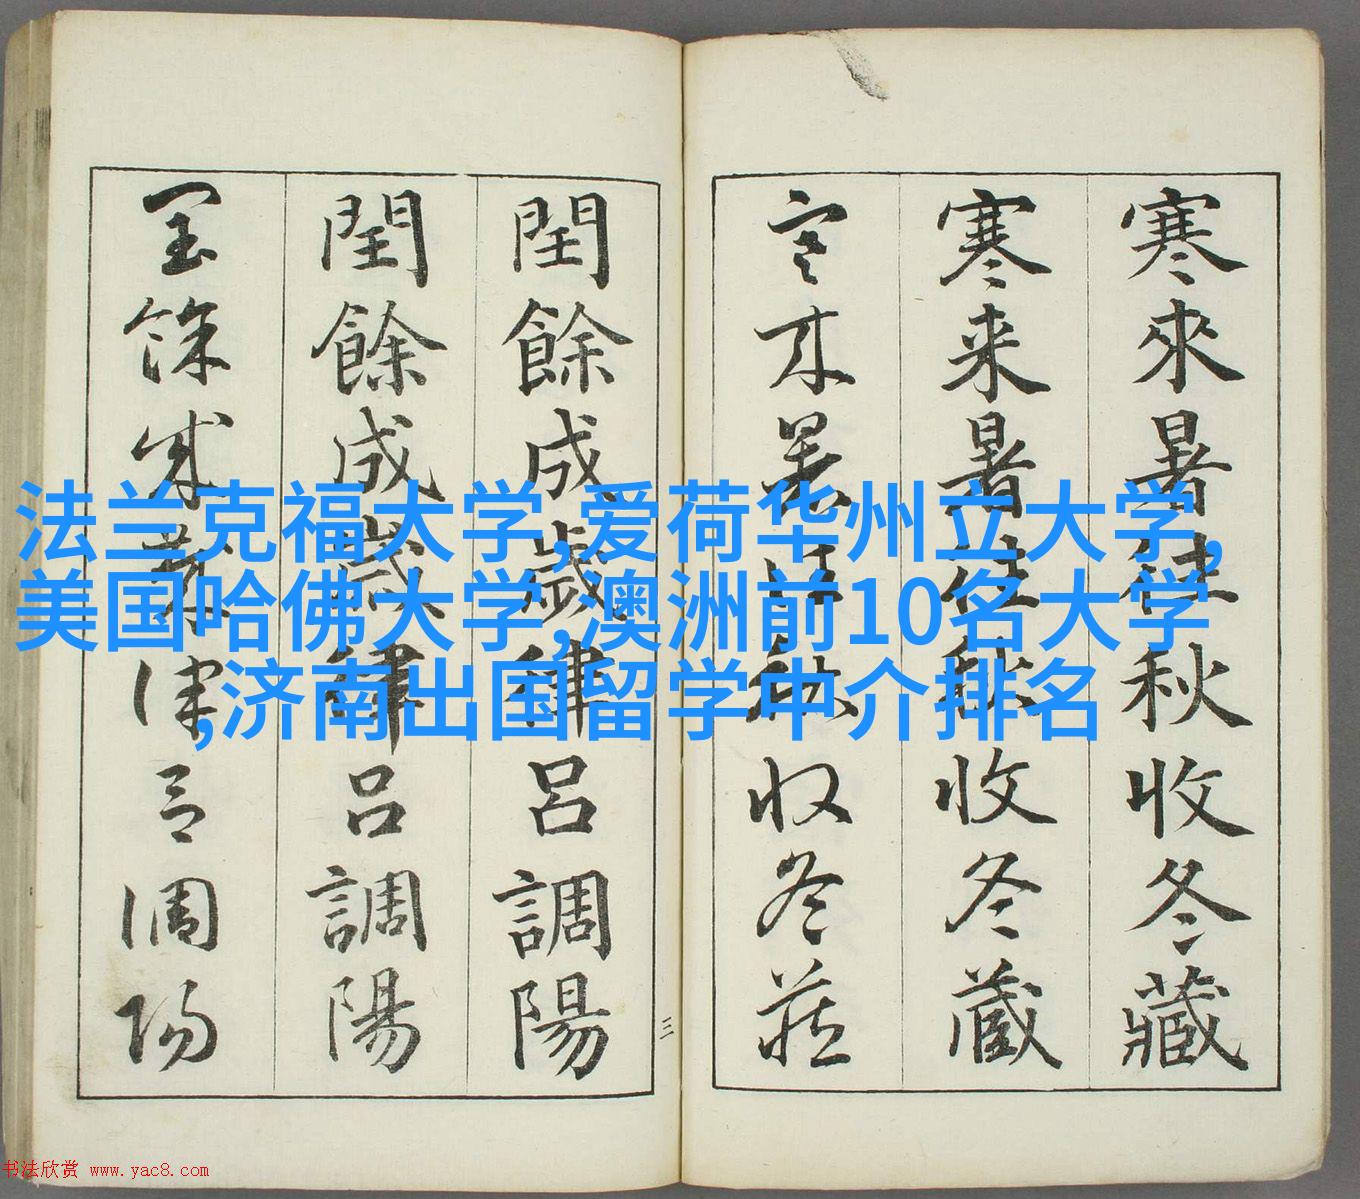 寒來暑往秋收冬藏
寒来暑往秋收冬藏
寒来暑往秋收冬藏
三
閏餘成歲律呂調陽
閏餘成歲律呂調陽
閏餘成歲律呂調陽
法兰克福大学,爱荷华州立大学,
美国哈佛大学,澳洲前10名大学
,济南出国留学中介排名
书法欣赏 www.yac8.com